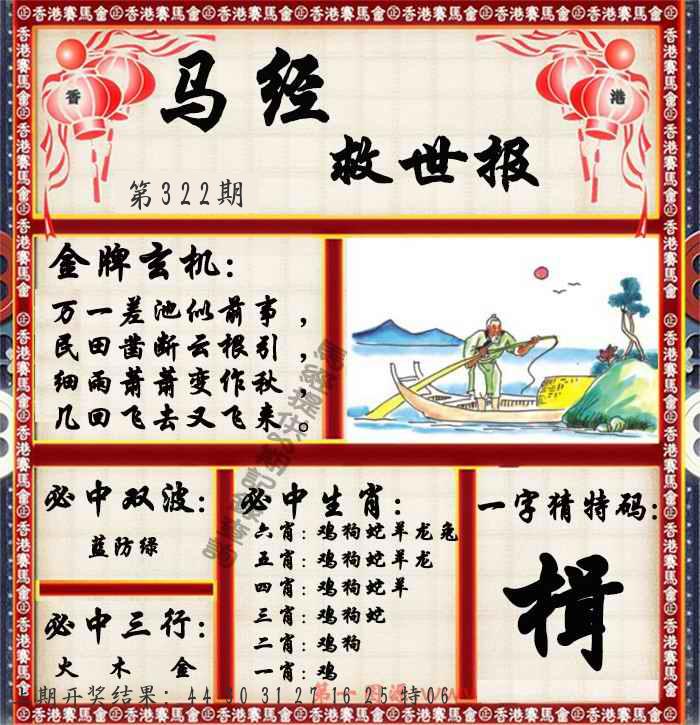 香港賽馬會 香港賽馬會 香港賽馬會 香港賽馬會 香港賽馬會 香港賽馬會
香
港
马经
救世报
第322期
金牌玄机:
万一差池似前事，
民田凿断云根引，
细雨萧萧变作秋，
几回飞去又飞来。
必中双波:
蓝防绿
必中三行:
火 木 金
必中生肖:
六肖:鸡狗蛇羊龙兔
五肖:鸡狗蛇羊龙
四肖:鸡狗蛇羊
三肖:鸡狗蛇
二肖:鸡狗
一肖:鸡
一字猜特码:
揖
期开奖结果: 44 30 31 27 16 25 特06